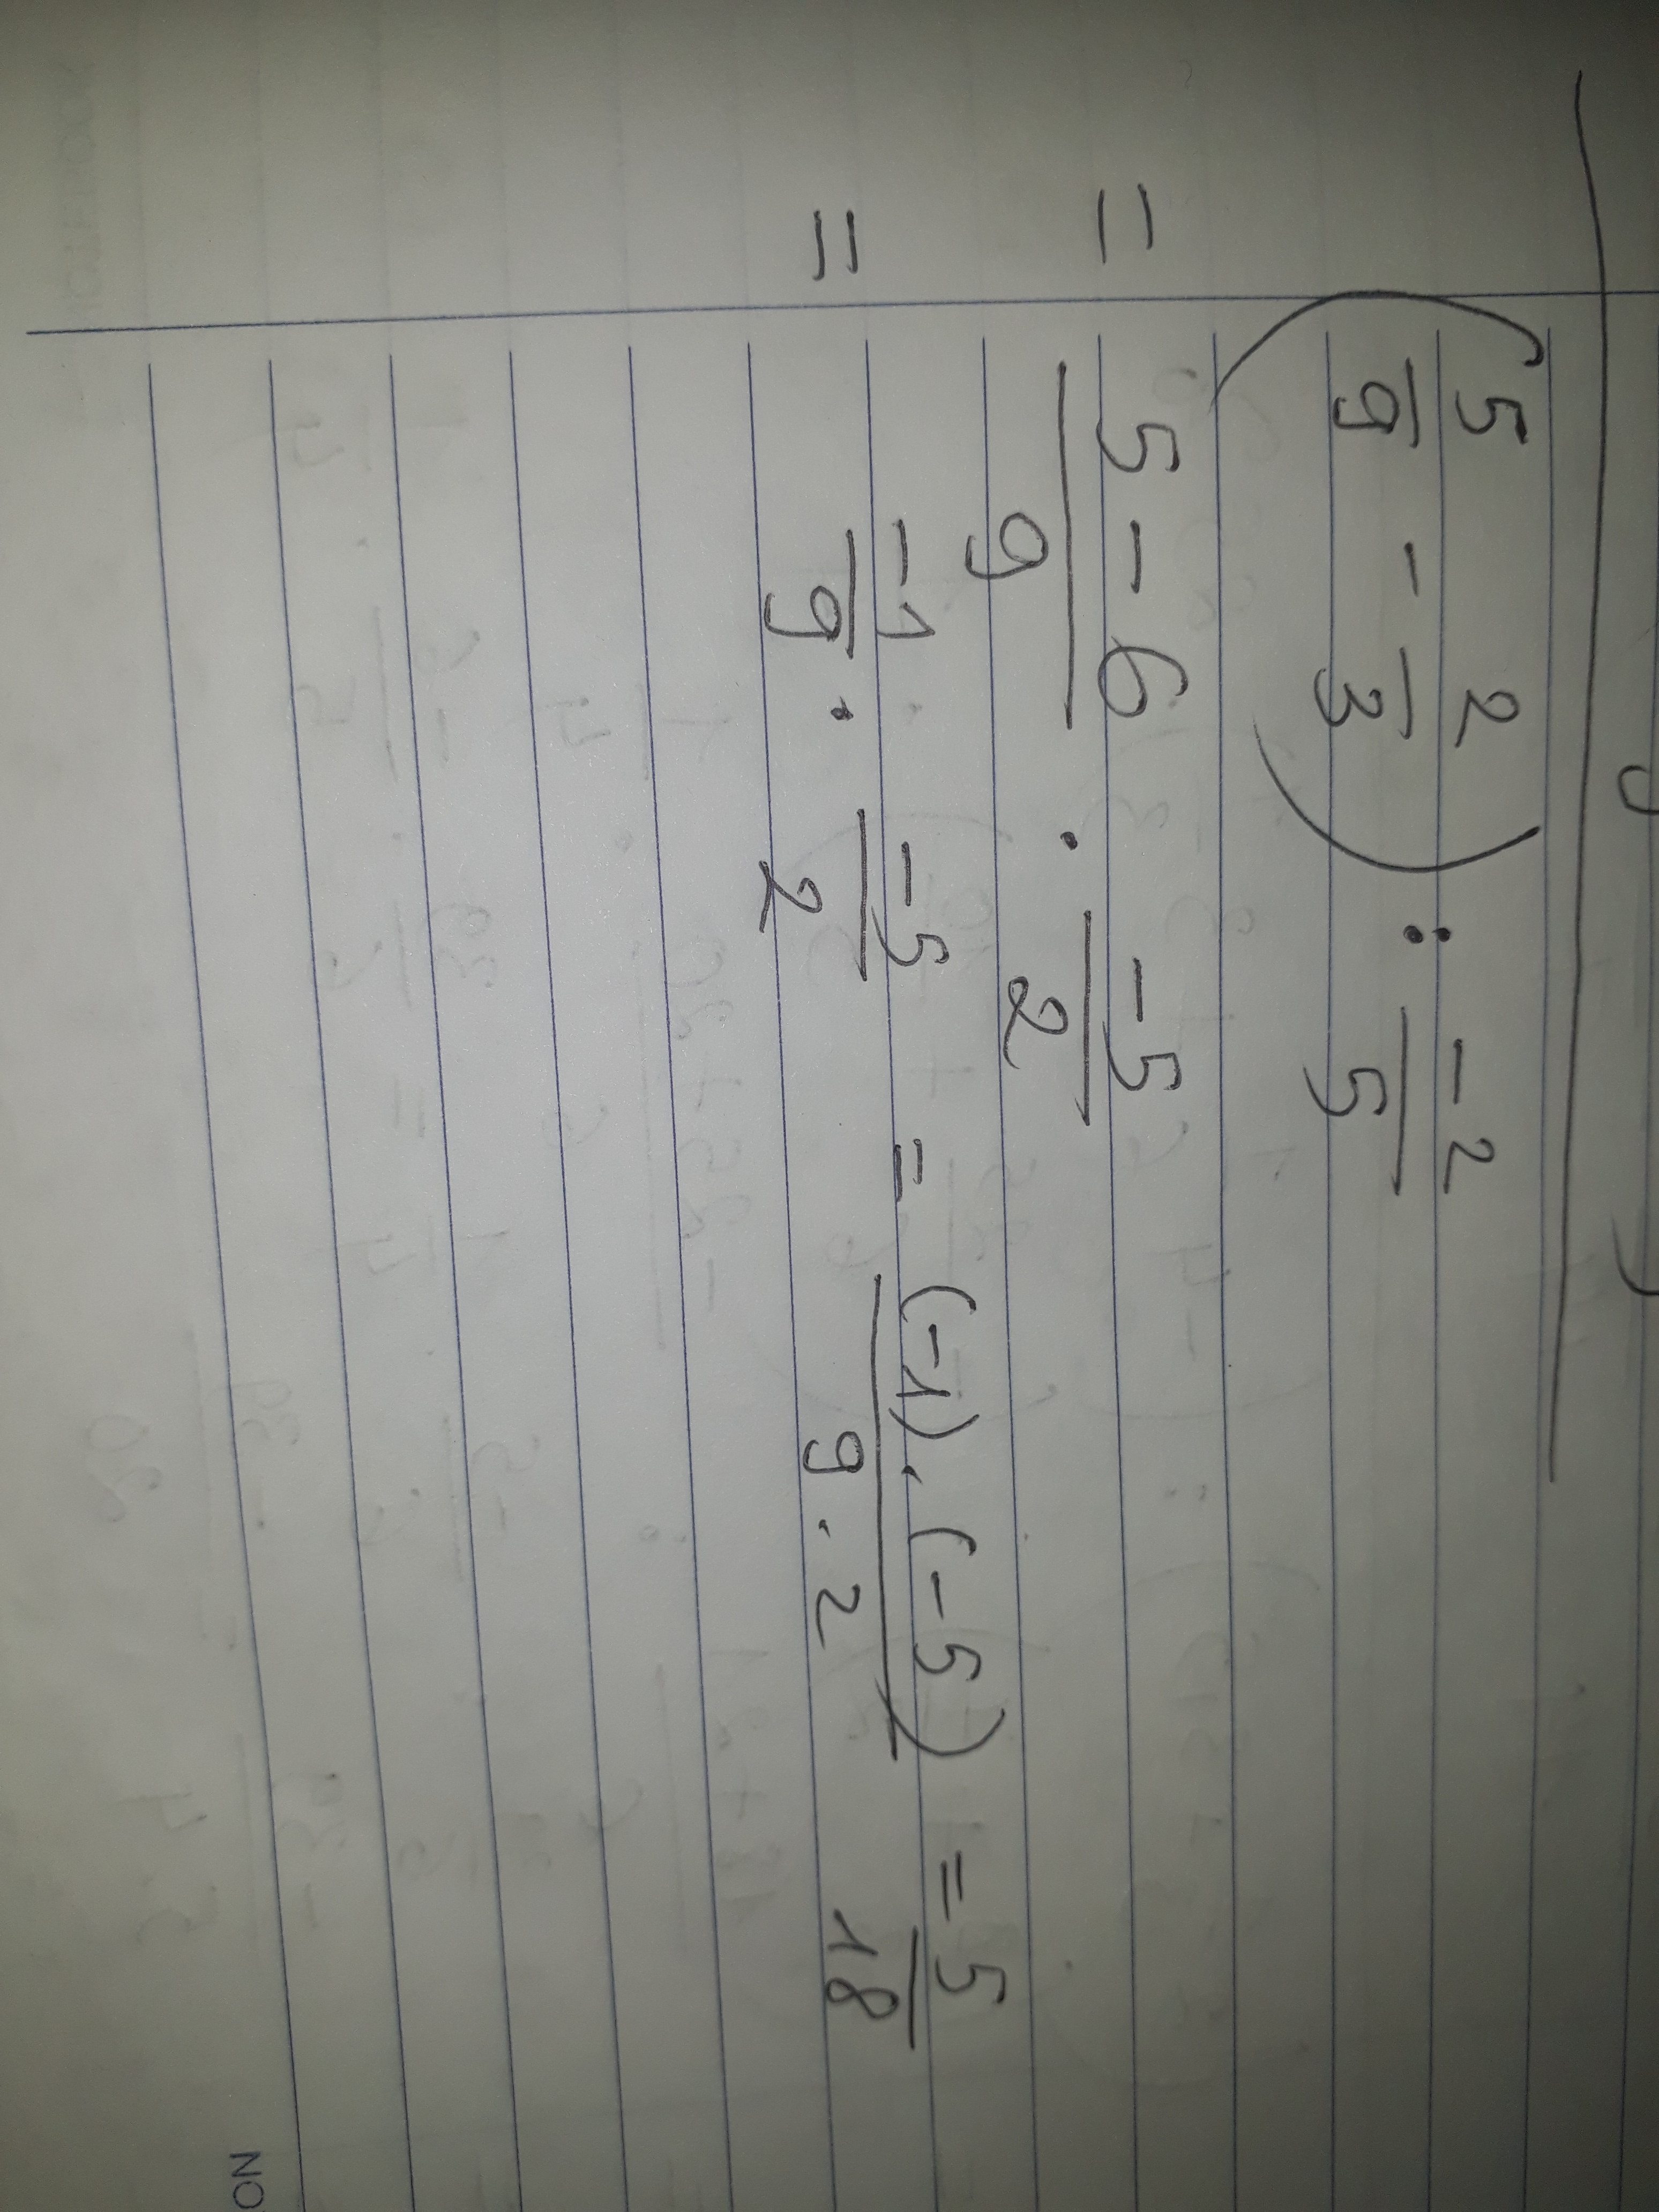 (5/9 - 2/3) : -2/5
= 5-6/9 · -5/2
= -1/9 · -5/2 = (-1)·(-5)/9·2 = 5/18